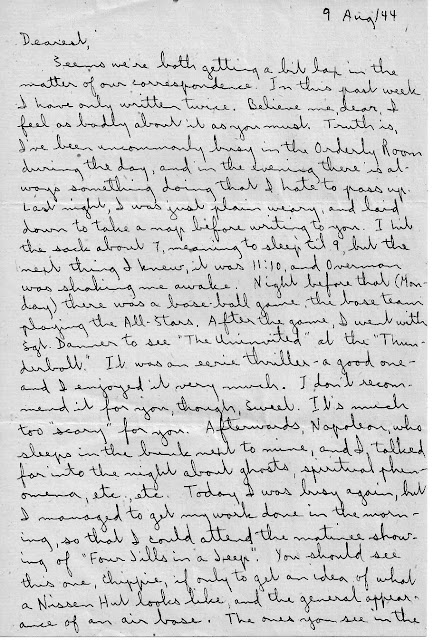 9 Aug/44
Dearest,
Seems we're both getting a bit lax in the
matter of our correspondence. In this past week
I have only written twice. Believe me, dear, I
feel as badly about it as you must. Truth is,
I've been uncommonly busy in the Orderly Room
during the day, and in the evening there is al-
ways something doing that I hate to pass up.
Last night, I was just plain weary, and laid
down to take a nap before writing to you. I hit
the sack about 7, meaning to sleep til 9, but the
next thing I knew, it was 11:10, and Overman
was shaking me awake. Night before that (Mon-
day) there was a base-ball game, the base team
playing the All-Stars. After the game, I went with
Sgt. Danner to see "The Uninvited" at the "Thun-
derbolt." It was an eerie thriller - a good one -
and I enjoyed it very much. I don't recom-
mend it for you, though, Sweet. It's much
too "scary" for you. Afterwards, Napoleon, who
sleeps in the bunk next to mine, and I, talked
far into the night about ghosts, spiritual phen-
omena, etc., etc. Today I was busy again, but
I managed to get my work done in the morn-
ing, so that I could attend the matinee show-
ing of "Four Jills in a Jeep". You should see
this one, Chippie, if only to get an idea of what
a Nissen Hut looks like, and the general appear-
ance of an air base. The ones you see in the